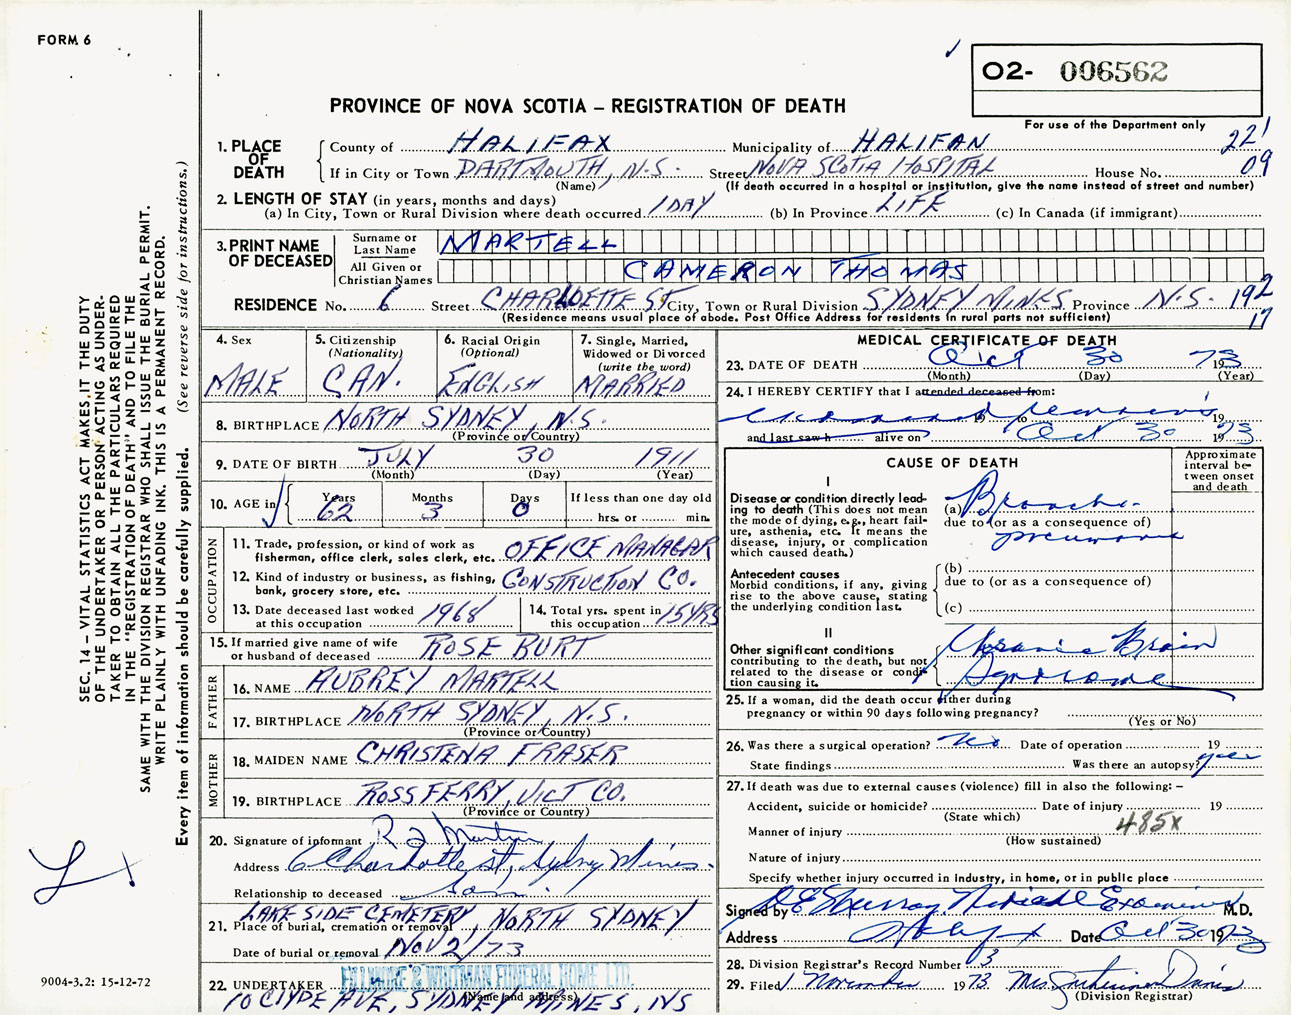 FORM 6
O2- 006562
PROVINCE OF NOVA SCOTIA – REGISTRATION OF DEATH
For use of the Department only
1. PLACE OF DEATH
County of HALIFAX Municipality of HALIFAX 22
If in City or Town DARTMOUTH, N.S. Street NOVA SCOTIA HOSPITAL House No. 09
(Name) (If death occurred in a hospital or institution, give the name instead of street and number)
2. LENGTH OF STAY (in years, months and days)
(a) In City, Town or Rural Division where death occurred 1 DAY (b) In Province LIFE (c) In Canada (if immigrant)
3. PRINT NAME OF DECEASED
Surname or Last Name MARTELL
All Given or Christian Names CAMERON THOMAS
RESIDENCE No. 6 Street CHARLOETTE ST City, Town or Rural Division SYDNEY MINES Province N.S. 192
(Residence means usual place of abode. Post Office Address for residents in rural parts not sufficient) 17
4. Sex MALE
5. Citizenship (Nationality) CAN.
6. Racial Origin (Optional) ENGLISH
7. Single, Married, Widowed or Divorced (write the word) MARRIED
8. BIRTHPLACE NORTH SYDNEY, N.S.
(Province or Country)
9. DATE OF BIRTH JULY 30 1911
(Month) (Day) (Year)
10. AGE in Years 62 Months 3 Days 0 If less than one day old
hrs. or min.
OCCUPATION
11. Trade, profession, or kind of work as fisherman, office clerk, sales clerk, etc. OFFICE MANAGAR
12. Kind of industry or business, as fishing, bank, grocery store, etc. CONSTRUCTION CO.
13. Date deceased last worked at this occupation 1968
14. Total yrs. spent in this occupation 15 YRS
15. If married give name of wife or husband of deceased ROSE BURT
FATHER
16. NAME AUBREY MARTELL
17. BIRTHPLACE NORTH SYDNEY, N.S.
(Province or Country)
MOTHER
18. MAIDEN NAME CHRISTENA FRASER
19. BIRTHPLACE ROSS FERRY, VICT CO.
(Province or Country)
20. Signature of informant
Address 6 Charlotte st, Sydney Mines.
Relationship to deceased son.
21. LAKE SIDE CEMETERY, NORTH SYDNEY
Place of burial, cremation or removal
Date of burial or removal NOV 2/73
22. UNDERTAKER FILLMORE & WHITMAN FUNERAL HOME LTD.
(Name and address)
10 CLYDE AVE, SYDNEY MINES, NS
MEDICAL CERTIFICATE OF DEATH
23. DATE OF DEATH Oct 30 1973
(Month) (Day) (Year)
24. I HEREBY CERTIFY that I attended deceased from:
examined remains 19 to 19
and last saw h alive on Oct 30 1973
CAUSE OF DEATH
Approximate interval between onset and death
I
Disease or condition directly leading to death (This does not mean the mode of dying, e.g., heart failure, asthenia, etc. It means the disease, injury, or complication which caused death.)
(a) Broncho-
due to (or as a consequence of)
pneumonia
Antecedent causes
Morbid conditions, if any, giving rise to the above cause, stating the underlying condition last.
(b)
due to (or as a consequence of)
(c)
II
Other significant conditions contributing to the death, but not related to the disease or condition causing it.
Chronic Brain
Syndrome
25. If a woman, did the death occur either during pregnancy or within 90 days following pregnancy?
(Yes or No)
26. Was there a surgical operation? no Date of operation 19
State findings Was there an autopsy? yes
27. If death was due to external causes (violence) fill in also the following: –
Accident, suicide or homicide? Date of injury 19
(State which)
Manner of injury 485x
(How sustained)
Nature of injury
Specify whether injury occurred in industry, in home, or in public place
Signed by Murray Medical Examiner M.D.
Address Halifax Date Oct 30 1973
28. Division Registrar's Record Number 3
29. Filed 1 November 1973 Mrs. Davis
(Division Registrar)
SEC. 14 – VITAL STATISTICS ACT MAKES IT THE DUTY
OF THE UNDERTAKER OR PERSON ACTING AS UNDER-
TAKER TO OBTAIN ALL THE PARTICULARS REQUIRED
IN THE "REGISTRATION OF DEATH" AND TO FILE THE
SAME WITH THE DIVISION REGISTRAR WHO SHALL ISSUE THE BURIAL PERMIT.
WRITE PLAINLY WITH UNFADING INK. THIS IS A PERMANENT RECORD.
Every item of information should be carefully supplied. (See reverse side for instructions.)
9004-3.2: 15-12-72